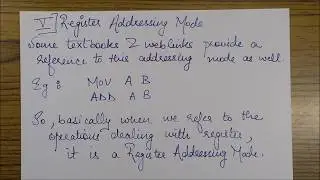 V Register Addressing Mode
Some textbooks & weblinks provide a
reference to this addressing mode as well.
Eg : MOV A B
ADD A B
So, basically when we refer to the
operations dealing with register,
it is a Register Addressing Mode.